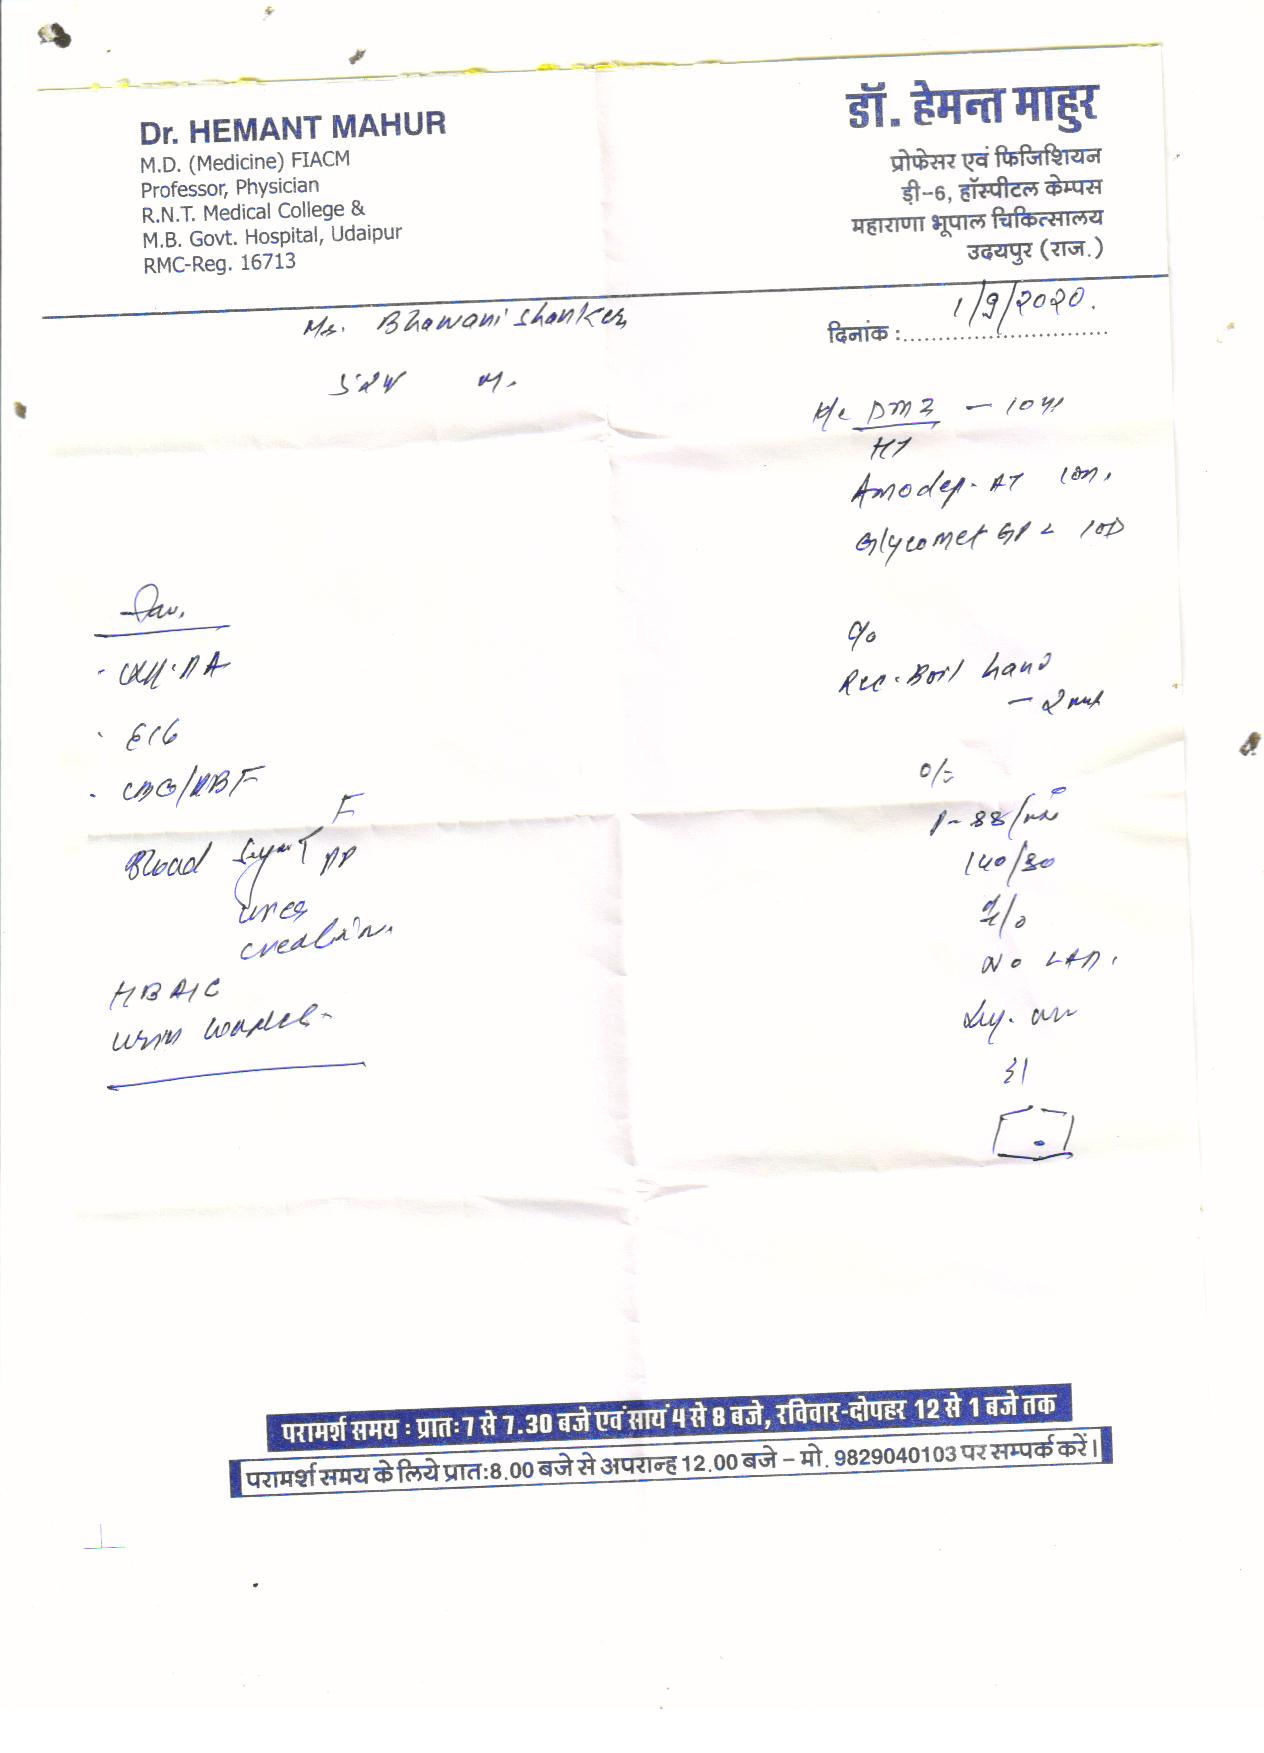 Dr. HEMANT MAHUR
M.D. (Medicine) FIACM
Professor, Physician
R.N.T. Medical College &
M.B. Govt. Hospital, Udaipur
RMC-Reg. 16713
डॉ. हेमन्त माहुर
प्रोफेसर एवं फिजिशियन
ड़ी-6, हॉस्पीटल केम्पस
महाराणा भूपाल चिकित्सालय
उदयपुर (राज.)
Mr. Bhawani Shanker
दिनांक : 1/9/2020.
M.
DM2 - 10 yr
HT
Amodep-AT
Glycomet GP 2 1OD
c/o
Rec. Boil hand
O/E
P-88/min
140/80
No LAP.
Inv.
ECG
CBC/PBF
Blood Sugar F
PP
Urea
Creatinin.
HBA1C
Urin complete
परामर्श समय : प्रातः 7 से 7.30 बजे एवं सायं 4 से 8 बजे, रविवार-दोपहर 12 से 1 बजे तक
परामर्श समय के लिये प्रात:8.00 बजे से अपरान्ह 12.00 बजे – मो. 9829040103 पर सम्पर्क करें।